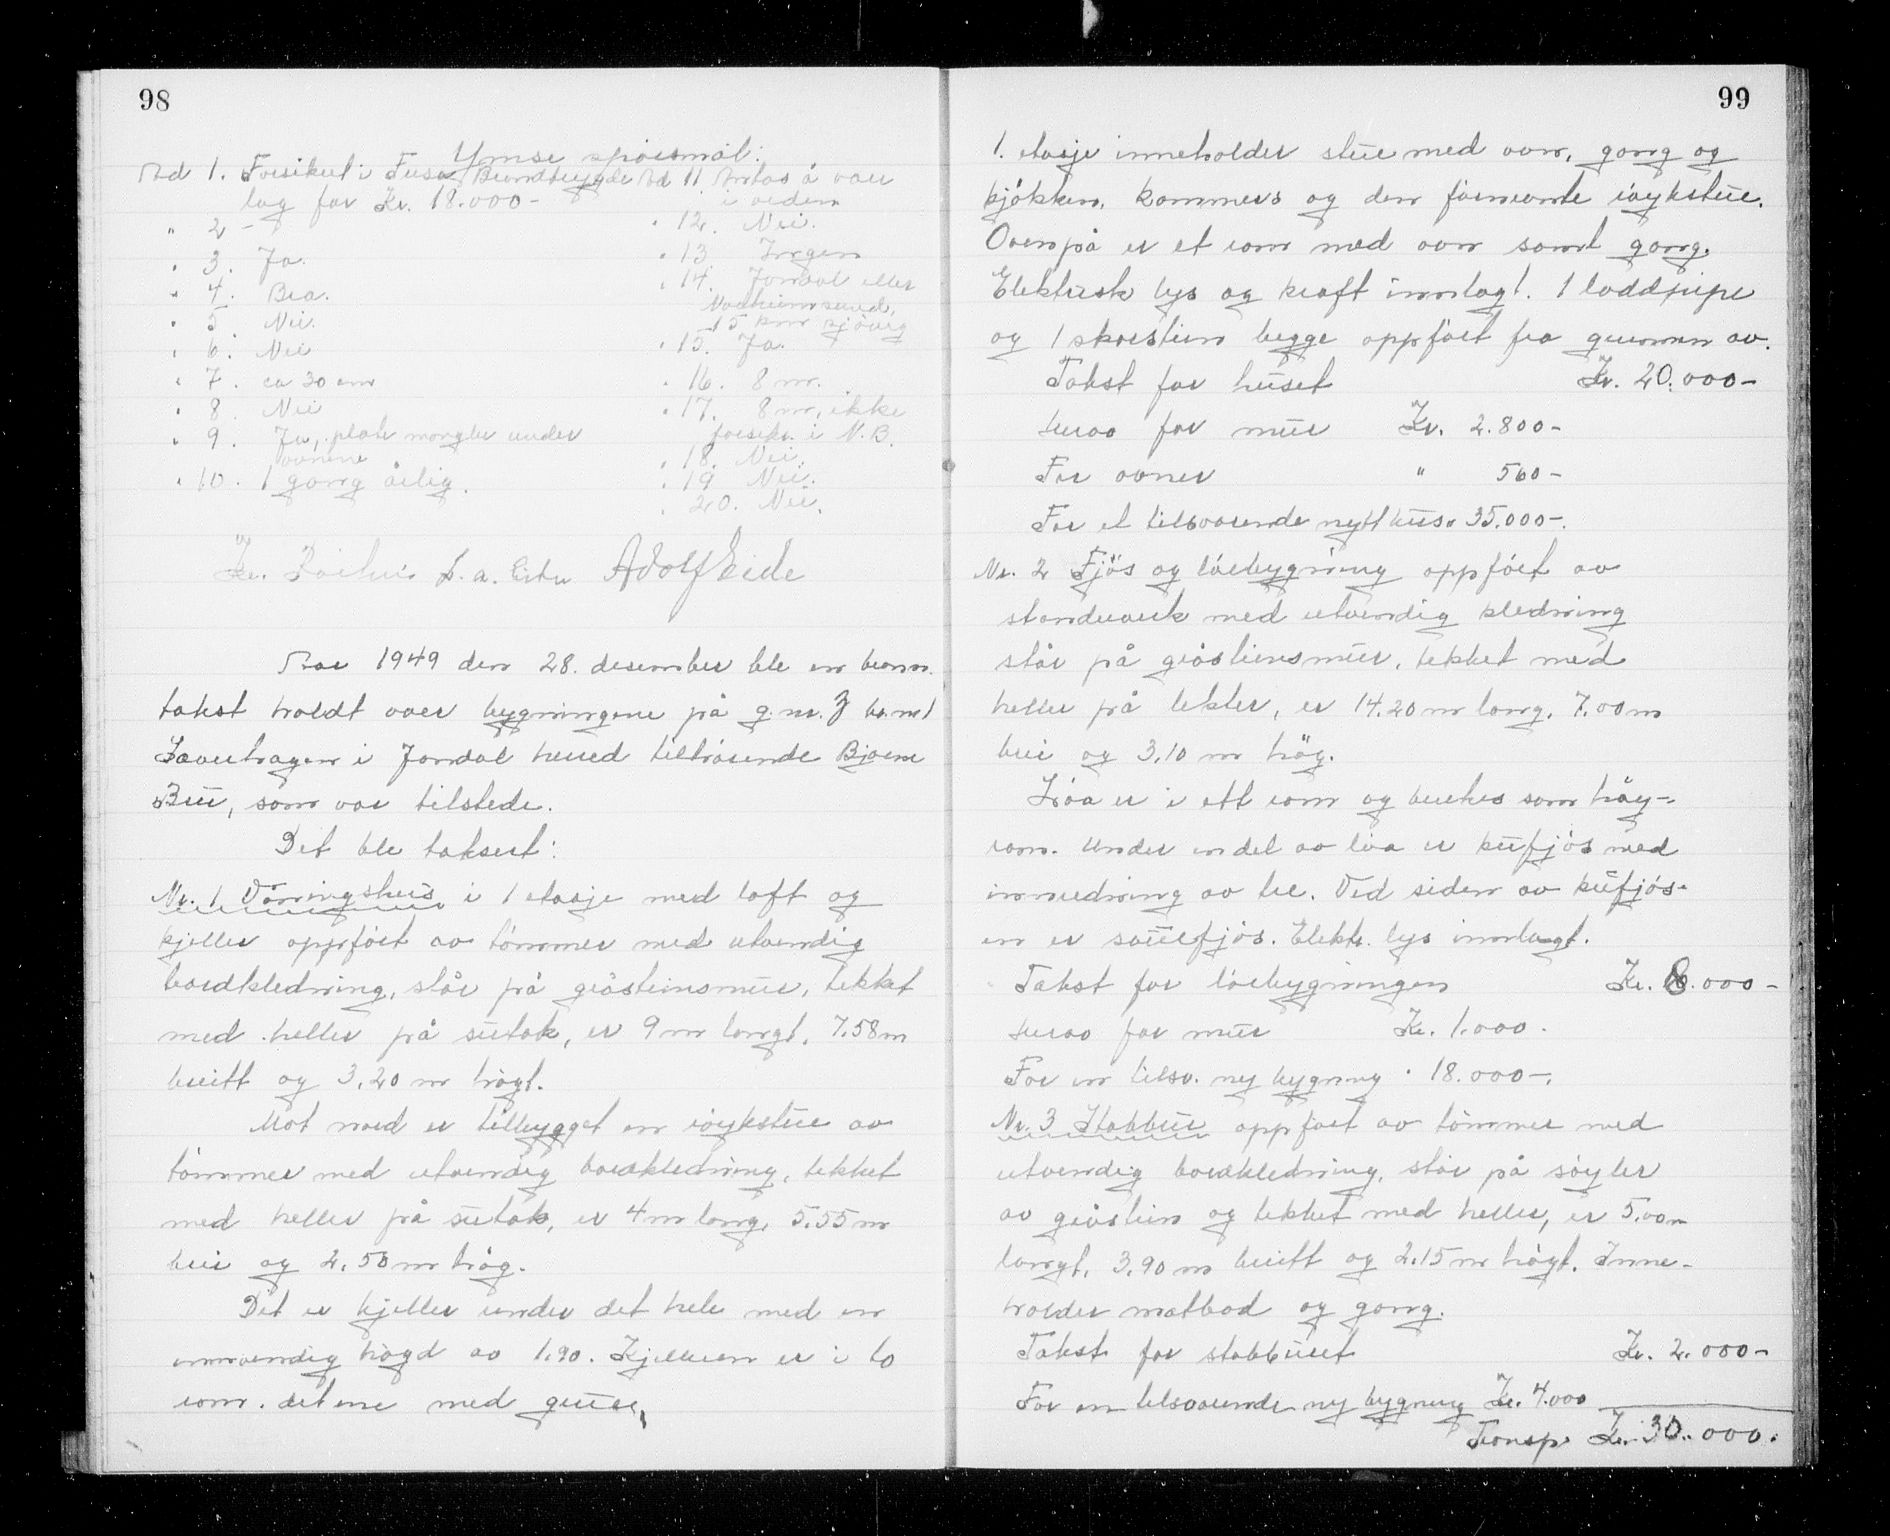 98
Ymse spørsmål:
Ad 1. Forsikret i Fusa Brandtrygde
lag for Kr. 18.000-
" 2 -
" 3. Ja.
" 4. Bra.
" 5. Nei.
" 6. Nei
" 7. ca 30 cm
" 8. Nei
" 9. Ja, plate mangler under
ovnene
" 10. 1 gang årlig.
Ad 11. Antas å være
i orden
" 12. Nei.
" 13 Ingen
" 14. Jondal eller
Norheimsund,
15 km sjöveg
" 15. Ja.
" 16. 8 m.
" 17. 8 m, ikke
forsikr. i N.B.
" 18. Nei.
" 19 Nei.
" 20. Nei.
Adolf Eide
Aar 1949 den 28. desember ble en brann-
takst holdt over bygningene på g.nr. 3 br.nr 1
i Jondal herred tilhørende Bjarne
Bru, som var tilstede.
Det ble taksert:
Nr. 1 Våningshus i 1 etasje med loft og
kjeller oppført av tømmer med utvendig
bordkledning, står på gråsteinsmur, tekket
med heller på sutak, er 9 m langt, 7,58 m
breitt og 3,20 m høgt.
Mot nord er tilbygget en röykstue av
tømmer med utvendig bordkledning, tekket
med heller på sutak, er 4 m lang, 5,55 m
brei og 2,50 m høg.
Det er kjeller under det hele med en
innvendig høgd av 1,90. Kjelleren er i to
rom. det ene med grue,
99
1. etasje inneholder stue med ovn, gang og
kjøkken, kammers og den førnevnte röykstue.
Ovenpå er et rom med ovn samt gang.
Elektrisk lys og kraft innlagt. 1 loddpipe
og 1 skorstein begge oppført fra grunnen av.
Takst for huset Kr. 20.000-
Herav for mur Kr. 2.800-
For ovner " 560-
For et tilsvarende nytt hus " 35.000-.
Nr. 2 Fjös og löebygning oppført av
standverk med utvendig kledning
står på gråsteinsmur, tekket med
heller på lekter, er 14.20 m lang, 7.00 m
brei og 3,10 m høg.
Löa er i ett rom og brukes som höy-
rom. Under en del av löa er kufjös med
innredning av tre. Ved siden av kufjös-
en er sauefjös. Elektr. lys innlagt.
Takst for löebygningen Kr. 8.000-
Herav for mur Kr. 1.000.
For en tilsv. ny bygning " 18.000-.
Nr. 3 Stabbur oppført av tømmer med
utvendig bordkledning, står på søyler
av gråstein og tekket med heller, er 5,00 m
langt, 3,90 m breitt og 2,15 m høgt. Inne-
holder matbod og gang.
Takst for stabburet Kr. 2.000-
For en tilsvarende ny bygning Kr. 4.000
Transp. Kr. 30.000.